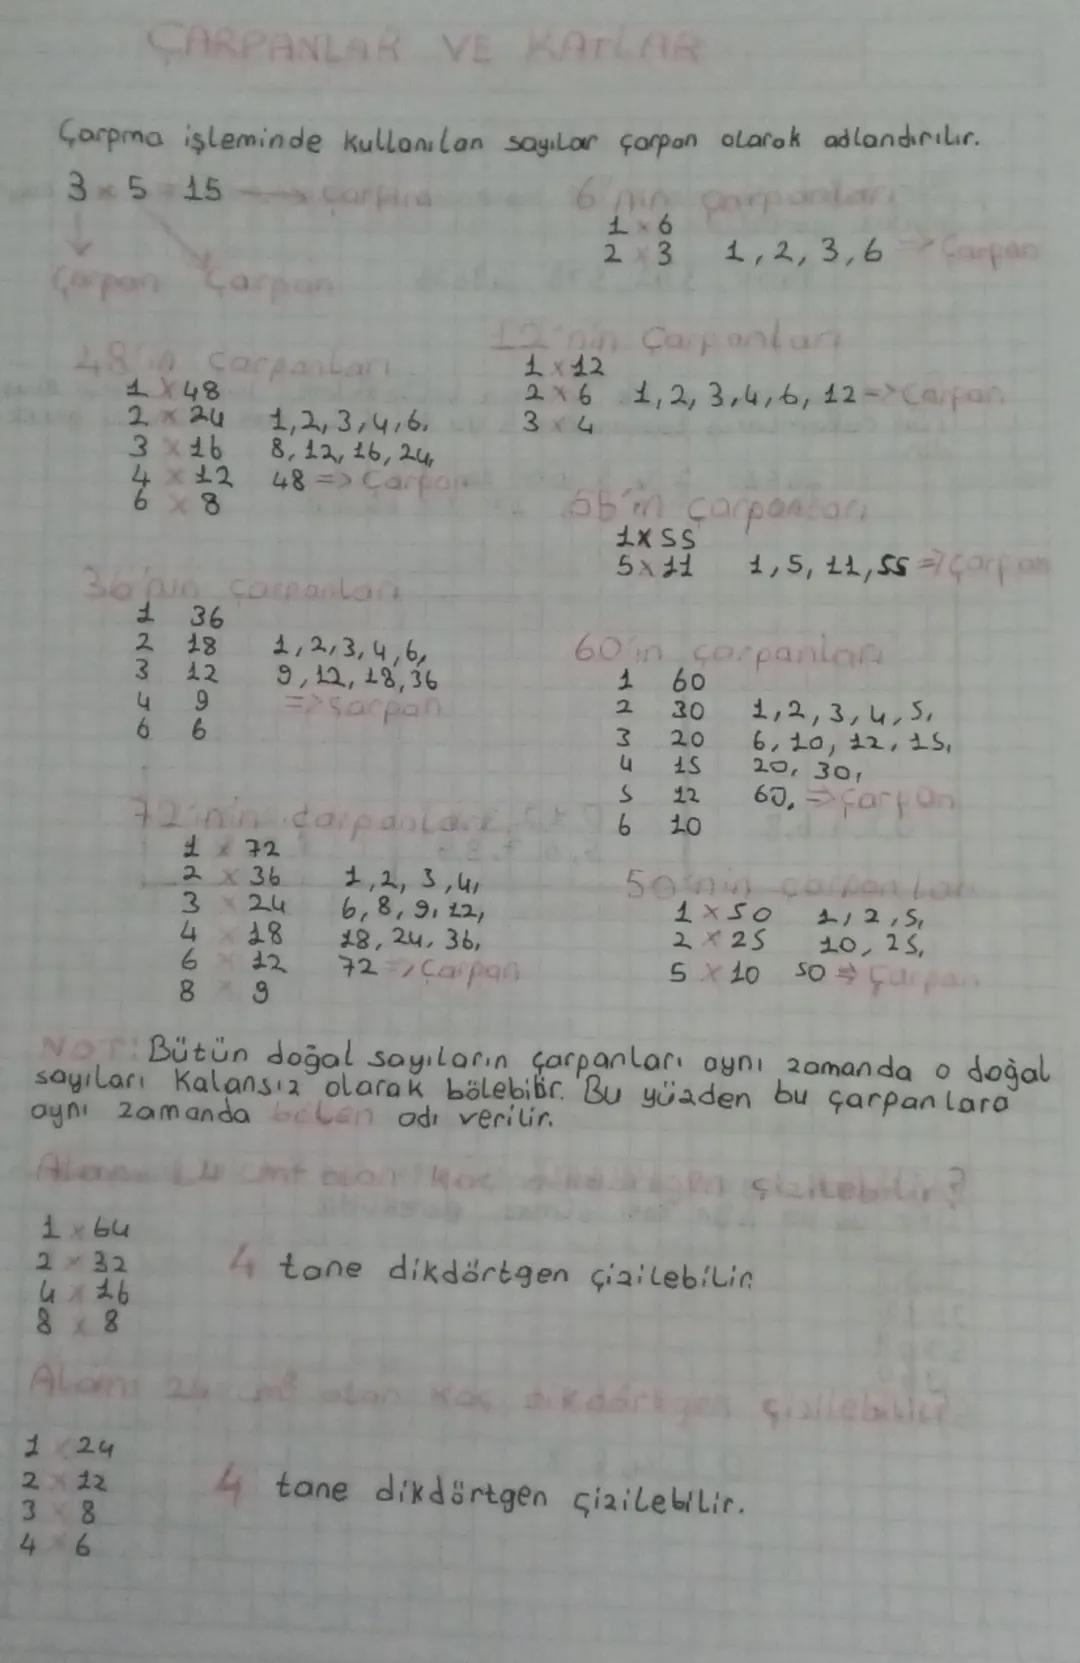 ÇARPANLAR VE KATLAR
Çarpma işleminde kullanılan sayılar çarpan olarak adlandırılır.
3 x 5 = 15 → çarpım
Çarpan Çarpan
6'nın çarpanları
1 x 6
2 x 3 1, 2, 3, 6 => Çarpan
48'in çarpanları
1 x 48
2 x 24 1, 2, 3, 4, 6,
3 x 16 8, 12, 16, 24,
4 x 12 48 => Çarpan
6 x 8
12'nin Çarpanları
1 x 12
2 x 6 1, 2, 3, 4, 6, 12 => Çarpan
3 x 4
55'in çarpanları
1 x 55
5 x 11 1, 5, 11, 55 => çarpan
36'nın çarpanları
1 36
2 18 1, 2, 3, 4, 6,
3 12 9, 12, 18, 36
4 9 => Çarpan
6 6
60'ın çarpanları
1 60
2 30 1, 2, 3, 4, 5,
3 20 6, 10, 12, 15,
4 15 20, 30,
5 12 60, => çarpan
6 10
72'nin çarpanları
1 x 72
2 x 36 1, 2, 3, 4,
3 x 24 6, 8, 9, 12,
4 x 18 18, 24, 36,
6 x 12 72 => Çarpan
8 x 9
50'nin çarpanları
1 x 50 1, 2, 5,
2 x 25 10, 25,
5 x 10 50 => Çarpan
NOT: Bütün doğal sayıların çarpanları aynı zamanda o doğal
sayıları kalansız olarak bölebilir. Bu yüzden bu çarpanlara
aynı zamanda bölen adı verilir.
Alanı olan kaç dikdörtgen çizilebilir?
1 x 64
2 x 32 4 tane dikdörtgen çizilebilir.
4 x 16
8 x 8
Alanı 24 olan kaç dikdörtgen çizilebilir?
1 x 24
2 x 12 4 tane dikdörtgen çizilebilir.
3 x 8
4 x 6